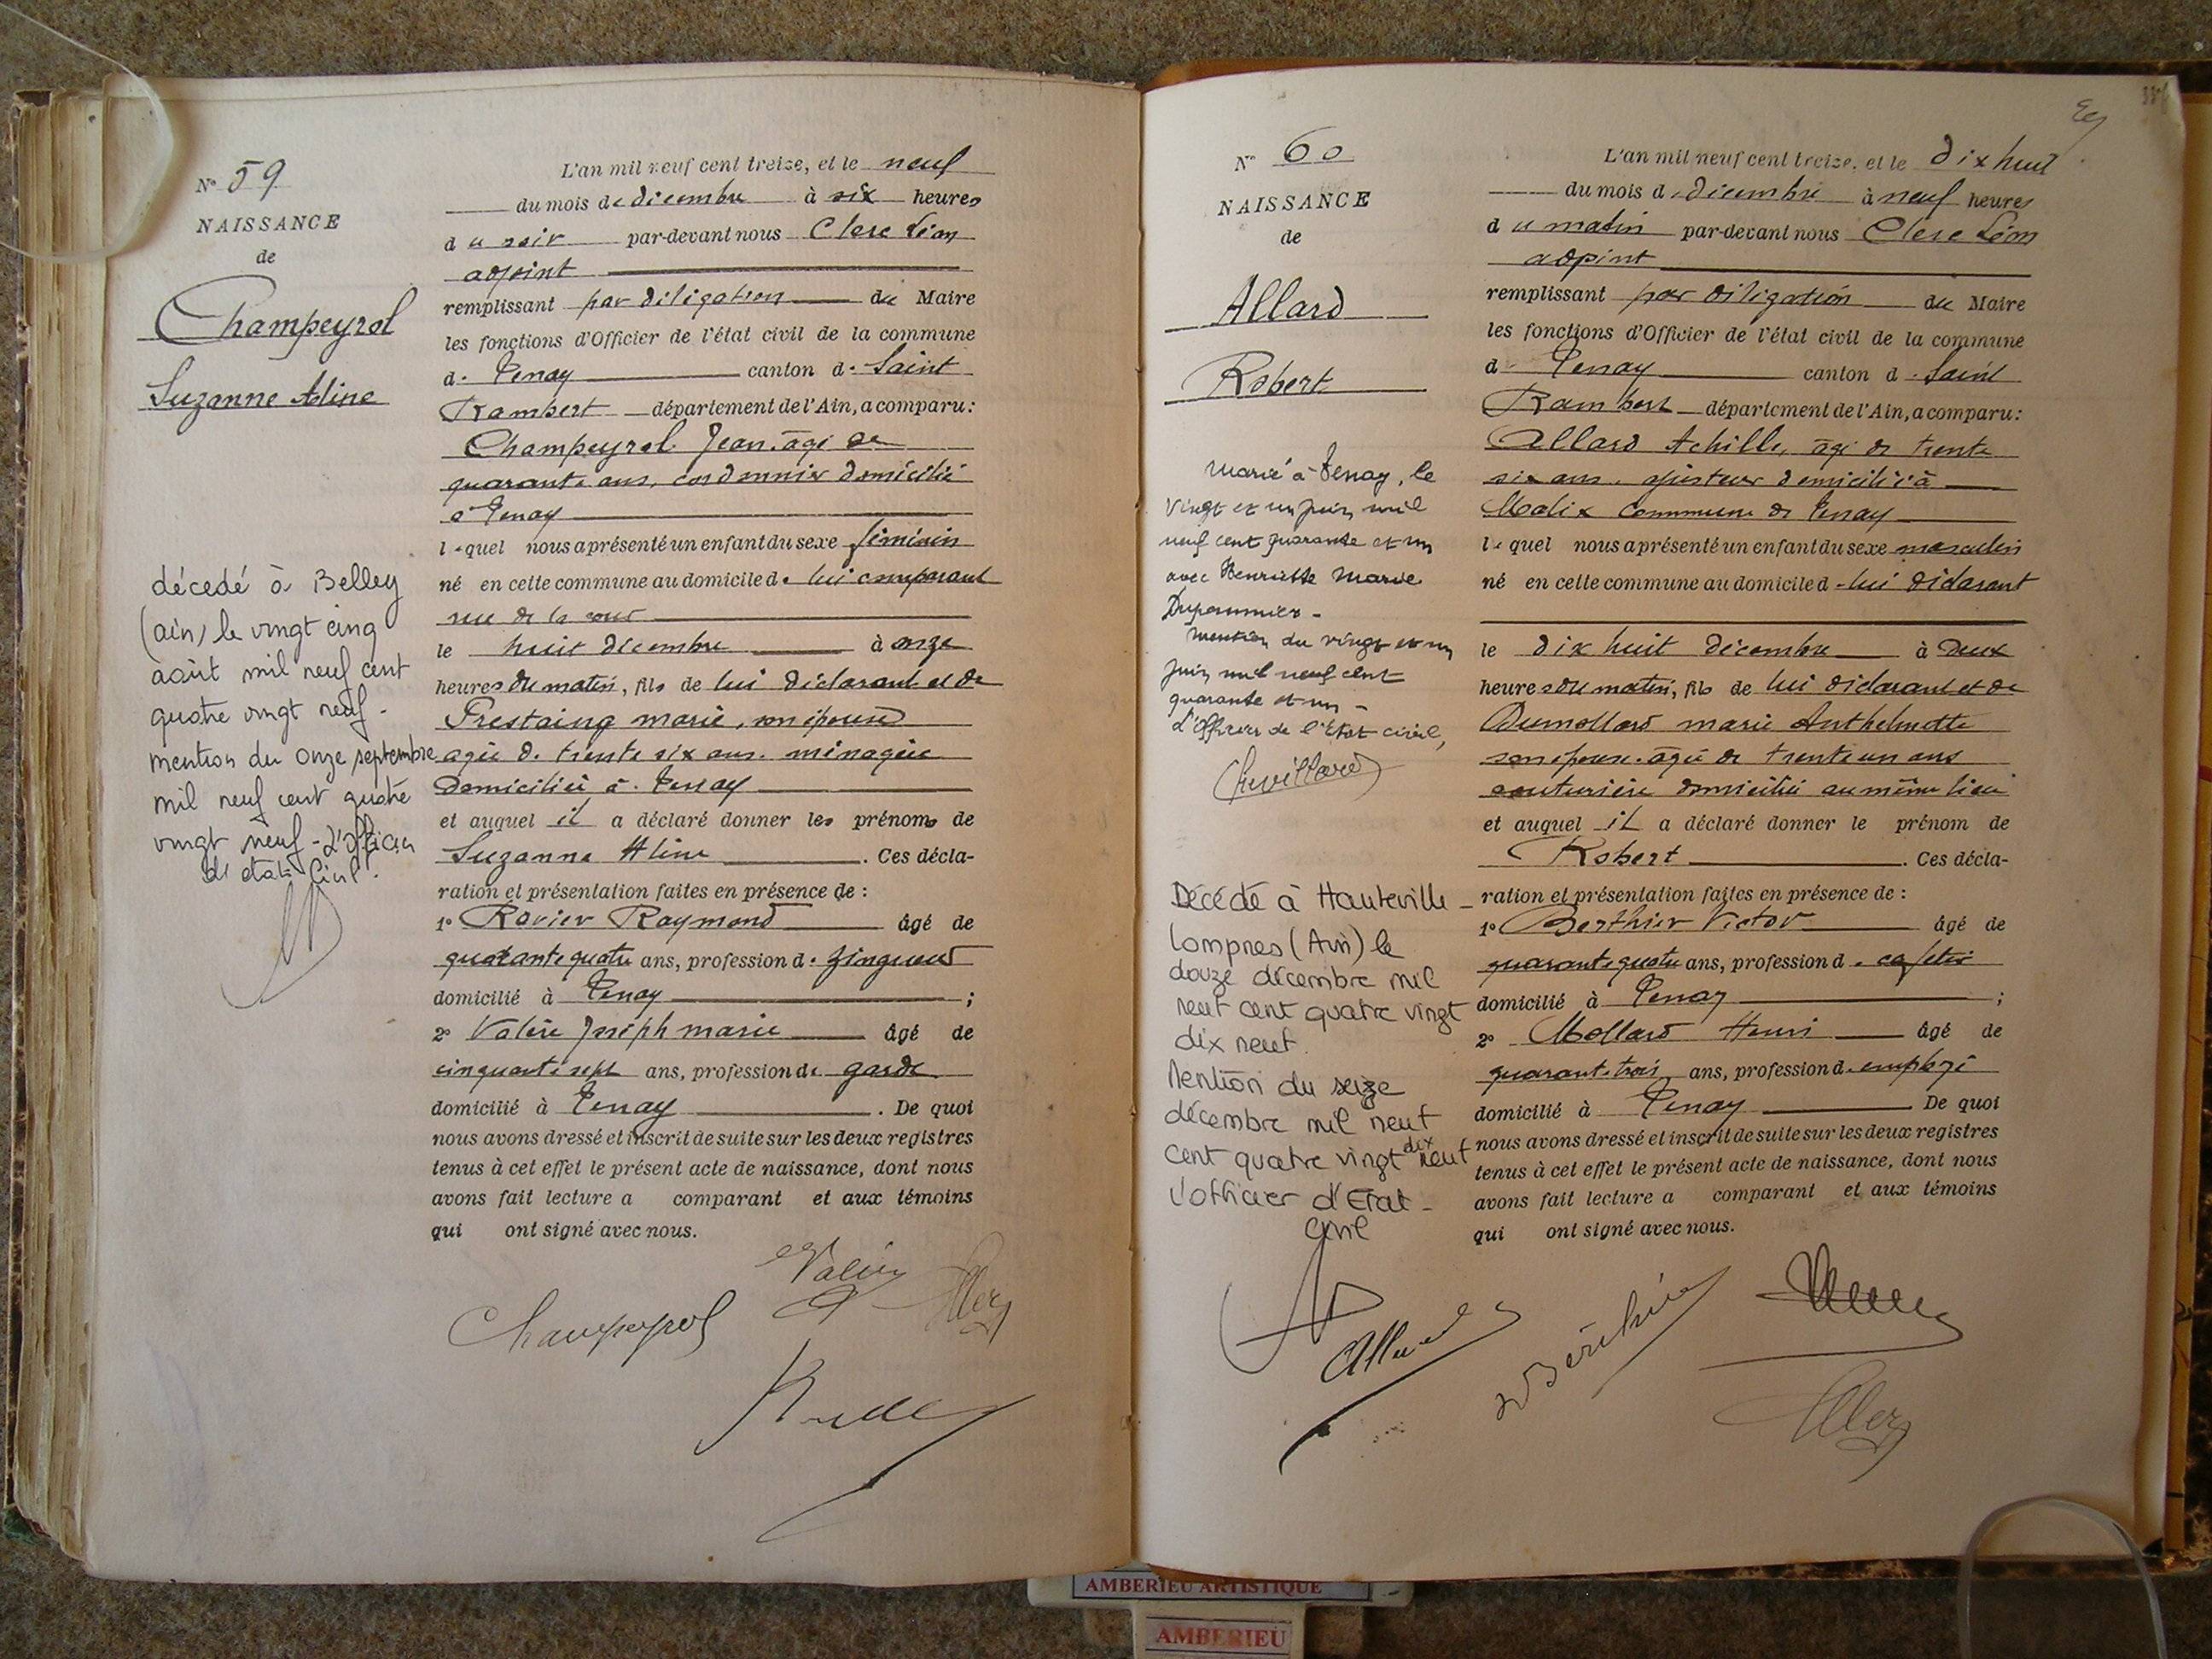 N° 59
NAISSANCE
de
Champeyrol
Suzanne Aline
décedé à Belley
(ain) le vingt cinq
août mil neuf cent
quatre vingt neuf -
mention du onze septembre
mil neuf cent quatre
vingt neuf - L'officier
d'etat Civil.
L'an mil neuf cent treize, et le neuf
du mois de décembre à six heures
du soir par-devant nous Clerc Léon
adjoint
remplissant par déligation du Maire
les fonctions d'Officier de l'état civil de la commune
de Tenay canton de Saint
Rambert département de l'Ain, a comparu :
Champeyrol Jean, âgé de
quarante ans, cordonnier domicilié
à Tenay
lequel nous a présenté un enfant du sexe féminin
né en cette commune au domicile de lui comparant
rue de la cour
le huit décembre à onze
heures du matin, fils de lui déclarant et de
Prestaing marie, son épouse
agée de trente six ans. ménagère
domiciliée à Tenay
et auquel il a déclaré donner les prénoms de
Suzanne Aline . Ces décla-
ration et présentation faites en présence de :
1° Ravier Raymond âgé de
quarante quatre ans, profession de zingueur
domicilié à Tenay ;
2° Valère Joseph marie âgé de
cinquante sept ans, profession de garde
domicilié à Tenay . De quoi
nous avons dressé et inscrit de suite sur les deux registres
tenus à cet effet le présent acte de naissance, dont nous
avons fait lecture a comparant et aux témoins
qui ont signé avec nous.
Champeyrol
N° 60
NAISSANCE
de
Allard
Robert
Marié à Tenay, le
vingt et un juin mil
neuf cent quarante et un
avec Henriette Marie
Duponnier -
Mention du vingt et un
juin mil neuf cent
quarante et un -
L'Officier de l'Etat civil,
Décédé à Hauteville -
Lompnes (Ain) le
douze décembre mil
neuf cent quatre vingt
dix neuf.
Mention du seize
décembre mil neuf
cent quatre vingt dix neuf
L'officier d'Etat -
Civil
L'an mil neuf cent treize, et le dix huit
du mois de décembre à neuf heures
du matin par-devant nous Clerc Léon
adjoint
remplissant par déligation du Maire
les fonctions d'Officier de l'état civil de la commune
de Tenay canton de Saint
Rambert département de l'Ain, a comparu :
Allard Achille, âgé de trente
six ans, ajusteur domicilié à
Malix commune de Tenay
lequel nous a présenté un enfant du sexe masculin
né en cette commune au domicile de lui déclarant
le dix huit décembre à deux
heures du matin, fils de lui déclarant et de
Dumollard marie Anthelmette
son épouse, âgée de trente un ans
couturière domiciliée au même lieu
et auquel il a déclaré donner le prénom de
Robert . Ces décla-
ration et présentation faites en présence de :
1° Berthier Victor âgé de
quarante quatre ans, profession de cafetier
domicilié à Tenay ;
2° Mollard Henri âgé de
quarante trois ans, profession d'employé
domicilié à Tenay De quoi
nous avons dressé et inscrit de suite sur les deux registres
tenus à cet effet le présent acte de naissance, dont nous
avons fait lecture a comparant et aux témoins
qui ont signé avec nous.
Allard
Berthier
AMBERIEU ARTISTIQUE
AMBERIEU